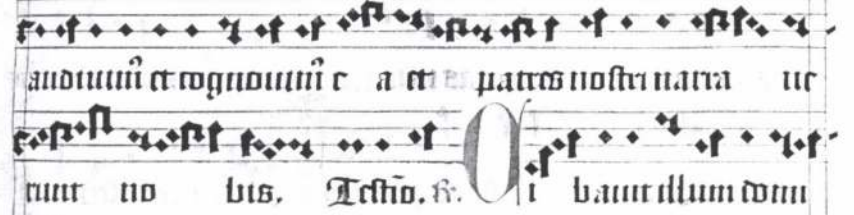 audiuim̃ et cognouim̃ e a et patres nostri narra ue
runt no bis. Testiõ. ℟. Ci bauit illum domi